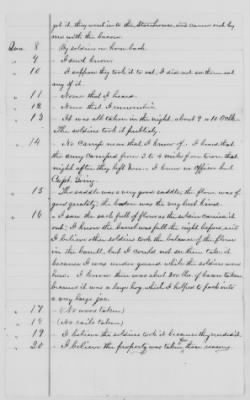 got it, they went into the Storehouse, and came out by
me with the bacon.
Ques 8 - By soldiers on horseback
" 9 - I dont know.
" 10 - I suppose they took it to eat, I did not see them eat
any of it.
" 11 - None that I heard.
" 12 - None that I remember.
" 13 - It was all taken in the night, about 9 or 10 Oclk.
The soldiers took it publicly.
" 14 - No Camp near that I know of. I heard that
the army camped from 3 to 4 miles from town that
night after they left here. I knew no officer but
Capt.
" 15 - The saddle was a very good saddle; the flour was of
good quality; the bacon was the very best kind.
" 16 - I saw the sack full of flour as the soldier carried it
out. I know the barrel was full the night before, and
I believe other soldiers took the balance of the flour
in the barrell, but I could not see them take it
because I was under guard while the soldiers were
here. I know there was about 200 lbs. of bacon taken
because it was a large hog which I helped to pack into
a very large jar.
" 17 - (No wood taken)
" 18 - (No rails taken)
" 19 - I believe the soldiers took it because they needed it.
" 20 - I believe the property was taken for reasons.